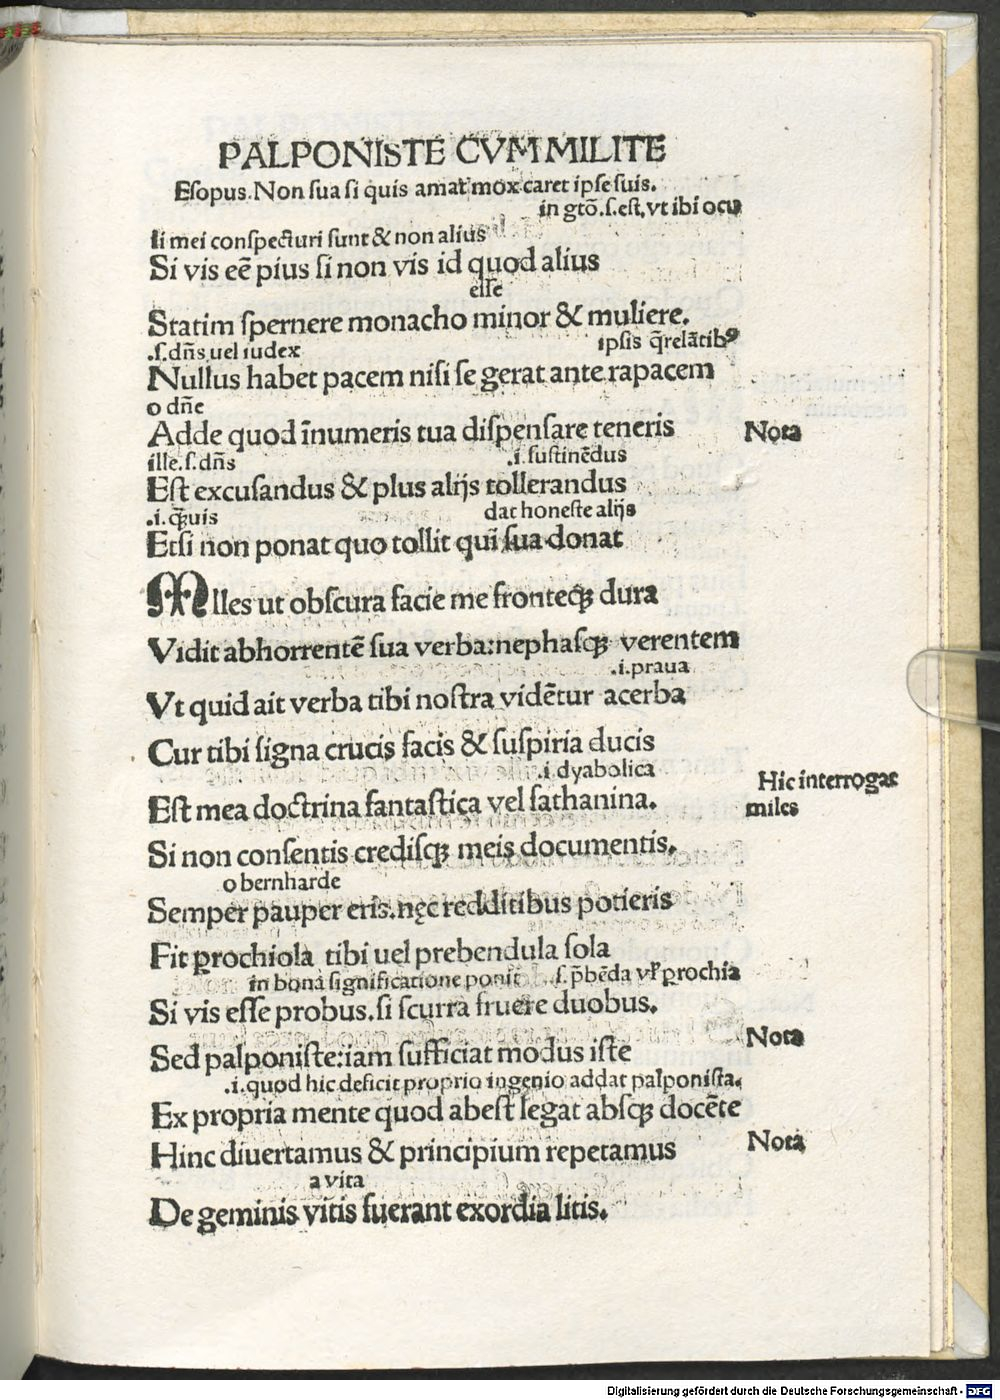 PALPONISTE CVM MILITE
Esopus. Non sua si quis amat mox caret ipse suis.
in gtõ.ſ.eſt, vt ibi ocu
li mei conſpecturi ſunt & non alius
Si vis eẽ pius ſi non vis id quod alius
eſſe
Statim ſpernere monacho minor & muliere.
.ſ.dñs uel iudex ipſis q̃relãtibꝰ
Nullus habet pacem niſi ſe gerat ante rapacem
o dñe
Adde quod ĩnumeris tua diſpenſare teneris
Nota
ille.ſ.dñs .i.ſuſtinẽdus
Eſt excuſandus & plus alijs tollerandus
.i.q̃uis dat honeſte alijs
Etſi non ponat quo tollit quĩ ſua donat
Mlles ut obſcura facie me fronteqꝫ dura
Vidit abhorrentẽ ſua verba:nephaſqꝫ verentem
.i.praua
Vt quid ait verba tibi noſtra vidẽtur acerba
Cur tibi ſigna crucis facis & ſuſpiria ducis
.i dyabolica
Hic interrogat
Eſt mea doctrina fantaſtica vel ſathanina.
miles
Si non conſentis crediſqꝫ meis documentis.
o bernharde
Semper pauper eris.nęc redditibus potieris
Fit ꝓchiola tibi uel prebendula ſola
in bona ſignificatione ponit ſ.p̃bẽda vꝉ ꝓchia
Si vis eſſe probus.ſi ſcurra fruere duobus.
Nota
Sed palponiſte:iam ſufficiat modus iſte
.i.quod hic deficit proprio ingenio addat palponiſta.
Ex propria mente quod abeſt legat abſqꝫ docẽte
Nota
Hinc diuertamus & principium repetamus
a vita
De geminis vitis fuerant exordia litis.
Digitalisierung gefördert durch die Deutsche Forschungsgemeinschaft - DFG